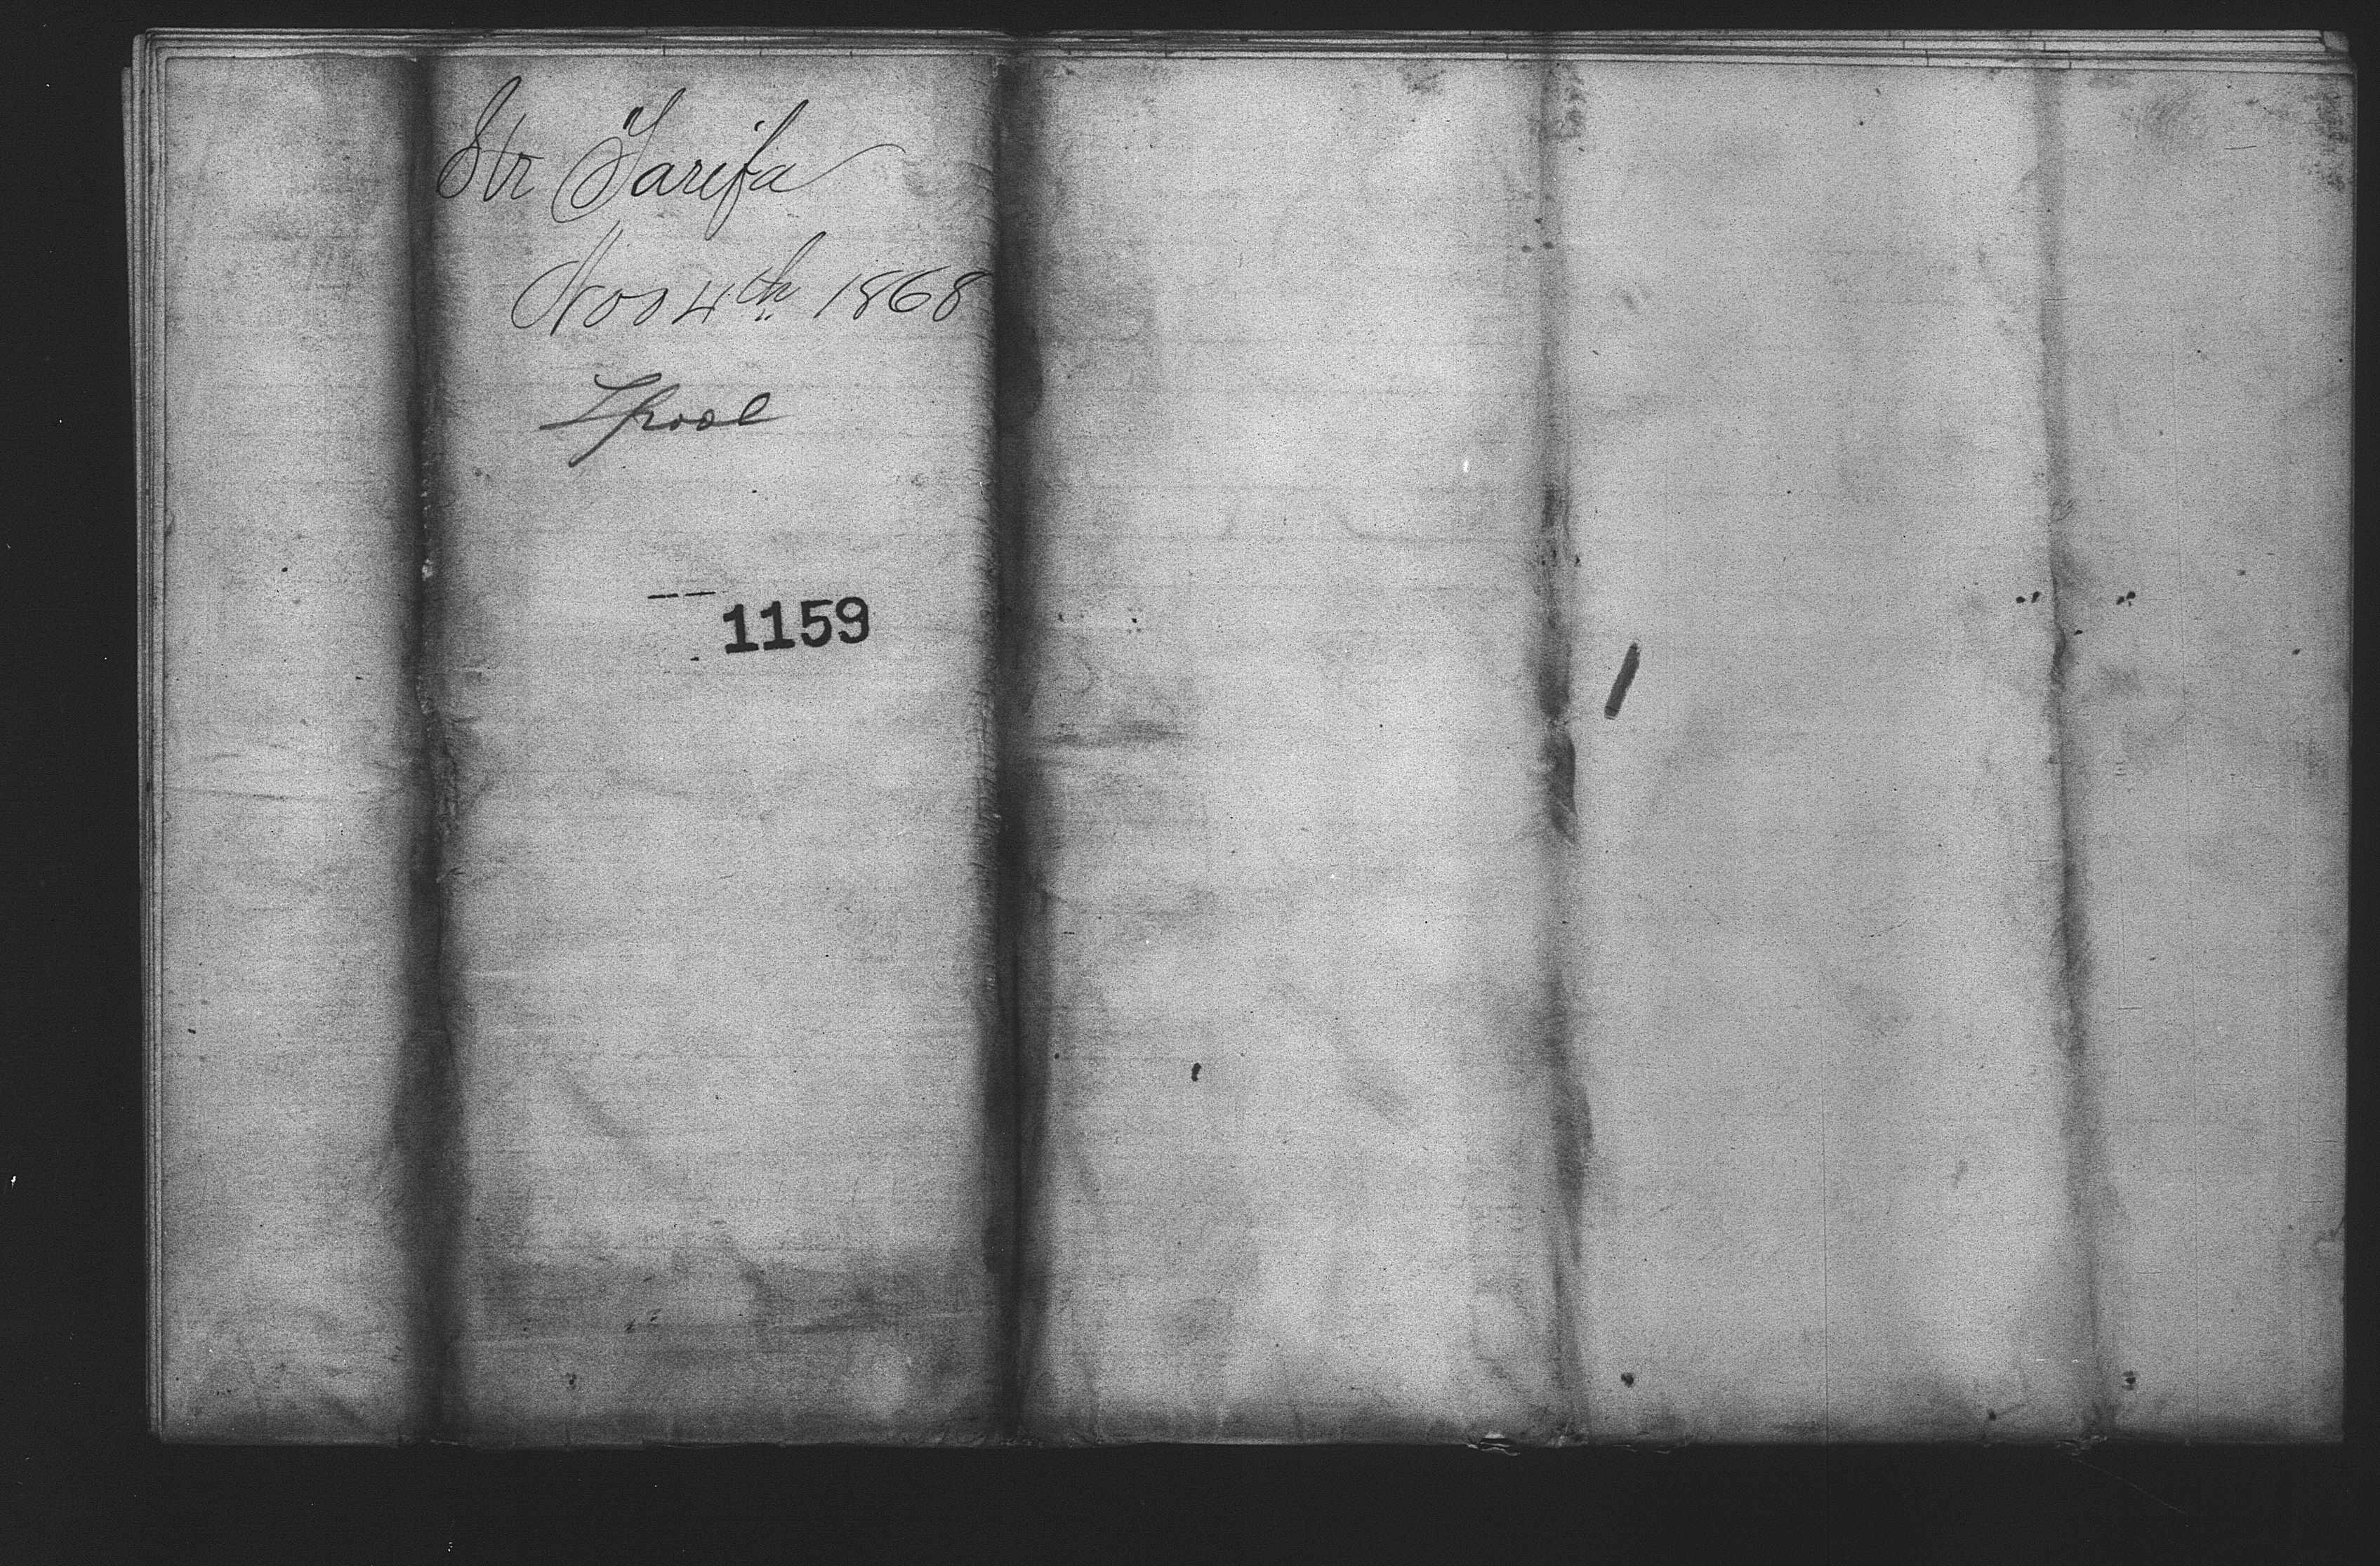 Str Tarifa
Nov 4th 1868
Lpool
1159